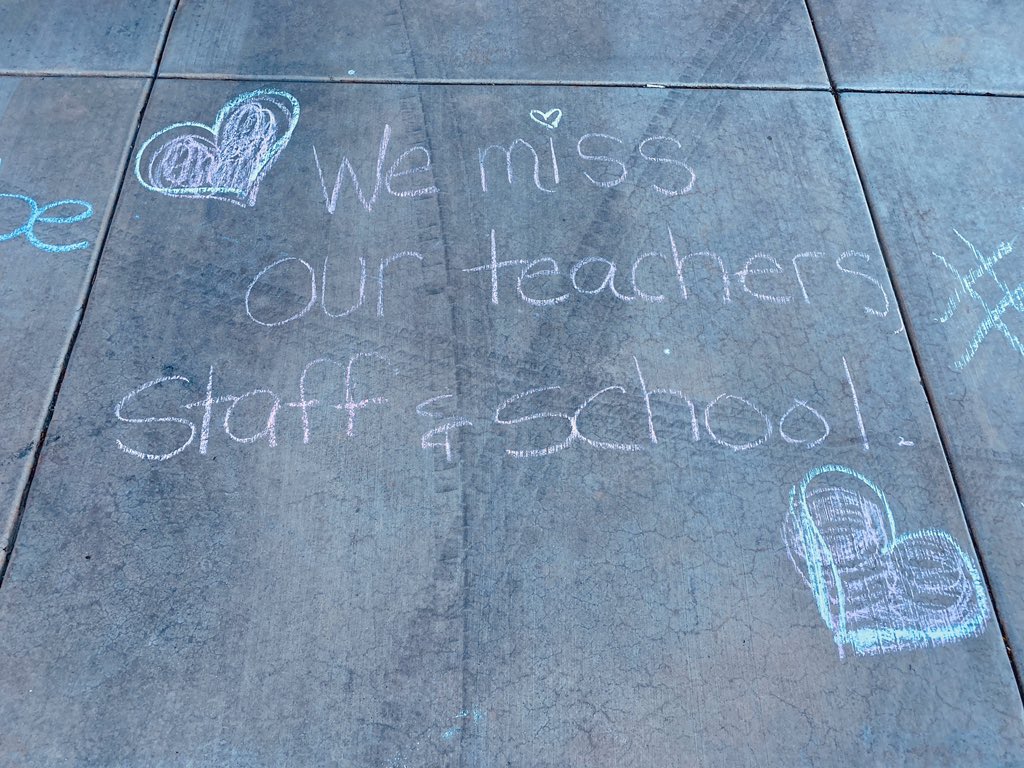 We miss
our teachers,
staff & school.